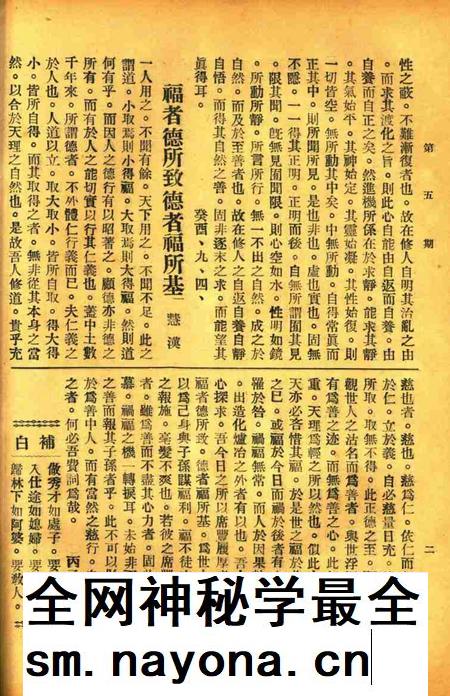 第五期
二
性之蔽。不難漸復者也。故在修人自明其治亂之由
。而求其渡化之旨。則此心自能由自返而自養。由
自養而自正之矣。然進機所係在於求靜。能求其靜
。其氣始平。其神始定。其靈始凝。其性始復。則
一切皆空。無所動其中矣。中無所動。自得常眞而
正其中。則所聞所見。是也非也。虛也實也。固無
不隱。一一得其正明。正明而後。自無所謂囿其見
。限其聞。旣無見囿聞限。則心空如水。性明如鏡
。所動所靜。所言所行。無一不出之自然。成之於
自然。而及於至善者也。故在修人之自返自養自靜
自悟。而得其自然之善。固非逐末之求。而能望其
眞得耳。 癸酉、九、四、
福者德所致德者福所基 慧漢
一人用之。不聞有餘。天下用之。不聞不足。此之
謂道。小取焉則小得福。大取焉則大得福。然則道
何有乎。而因人之德行有以昭著之。顧德亦非德之
所有。而有於人之能切實以行其仁義也。蓋中土數
千年來。所謂德者。不外體仁行義而已。夫仁義之
於人也。人道以立。取大取小。皆所自取。得大得
小。皆所自得。而其取得之者。無非從其本身之當
然。以合於天理之自然也。是故吾人修道。貴乎充
慈也者。慈也。慈爲仁。依仁而
於仁。立於義。自必慈量日充。
所取。取無不得。此正德之至。
觀世人之沽名而爲善者。與世浮
有爲善之迹。而無爲善之心。此
重。天理爲輕之所以然也。似此
天亦必吝惜其福。於是世之福於
之已。或福於今日而禍於後者有
罹於咎。禍福無常。而人於因果
。出造化爐冶之外者有以也。吾
心探求。吾今日之所以席豐履厚
福者德所致。德者福所基。爲世
以爲己身與子孫謀福利。不福不徒
之報施。毫髮不爽也。若彼之席
者。雖爲善而不盡其心力者。固
慕。禍福之機一轉捩耳。未始非
之善而報其子孫者乎。此不可以
於爲善中人。而有當然之慈行。
之者。何必吾費詞爲哉。 丙
補白
做秀才如處子。要
入仕途如媳婦。要
歸林下如阿婆。要教人。
全网神秘学最全
sm.nayona.cn